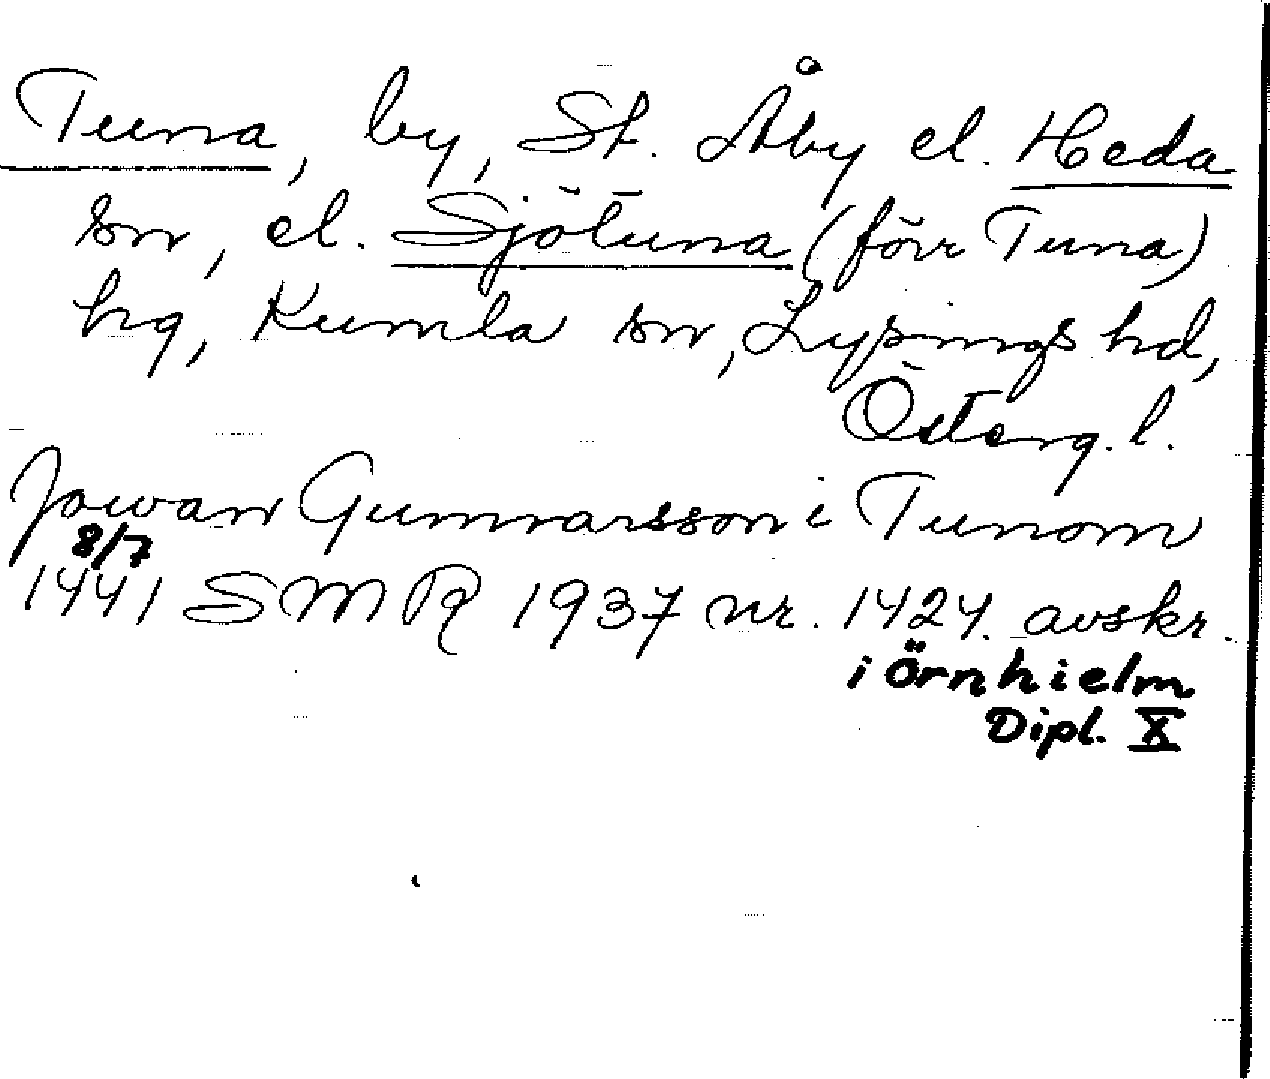 Tuna, by, St. Åby el. Heda
sn, el. Sjötuna (förr Tuna)
hg, Kumla sn, Lysings hd,
Österg. l.
Jowan Gunnarsson i Tunom
8/7
1441 SMR 1937 nr. 1424. avskr.
i Örnhielm
Dipl. X